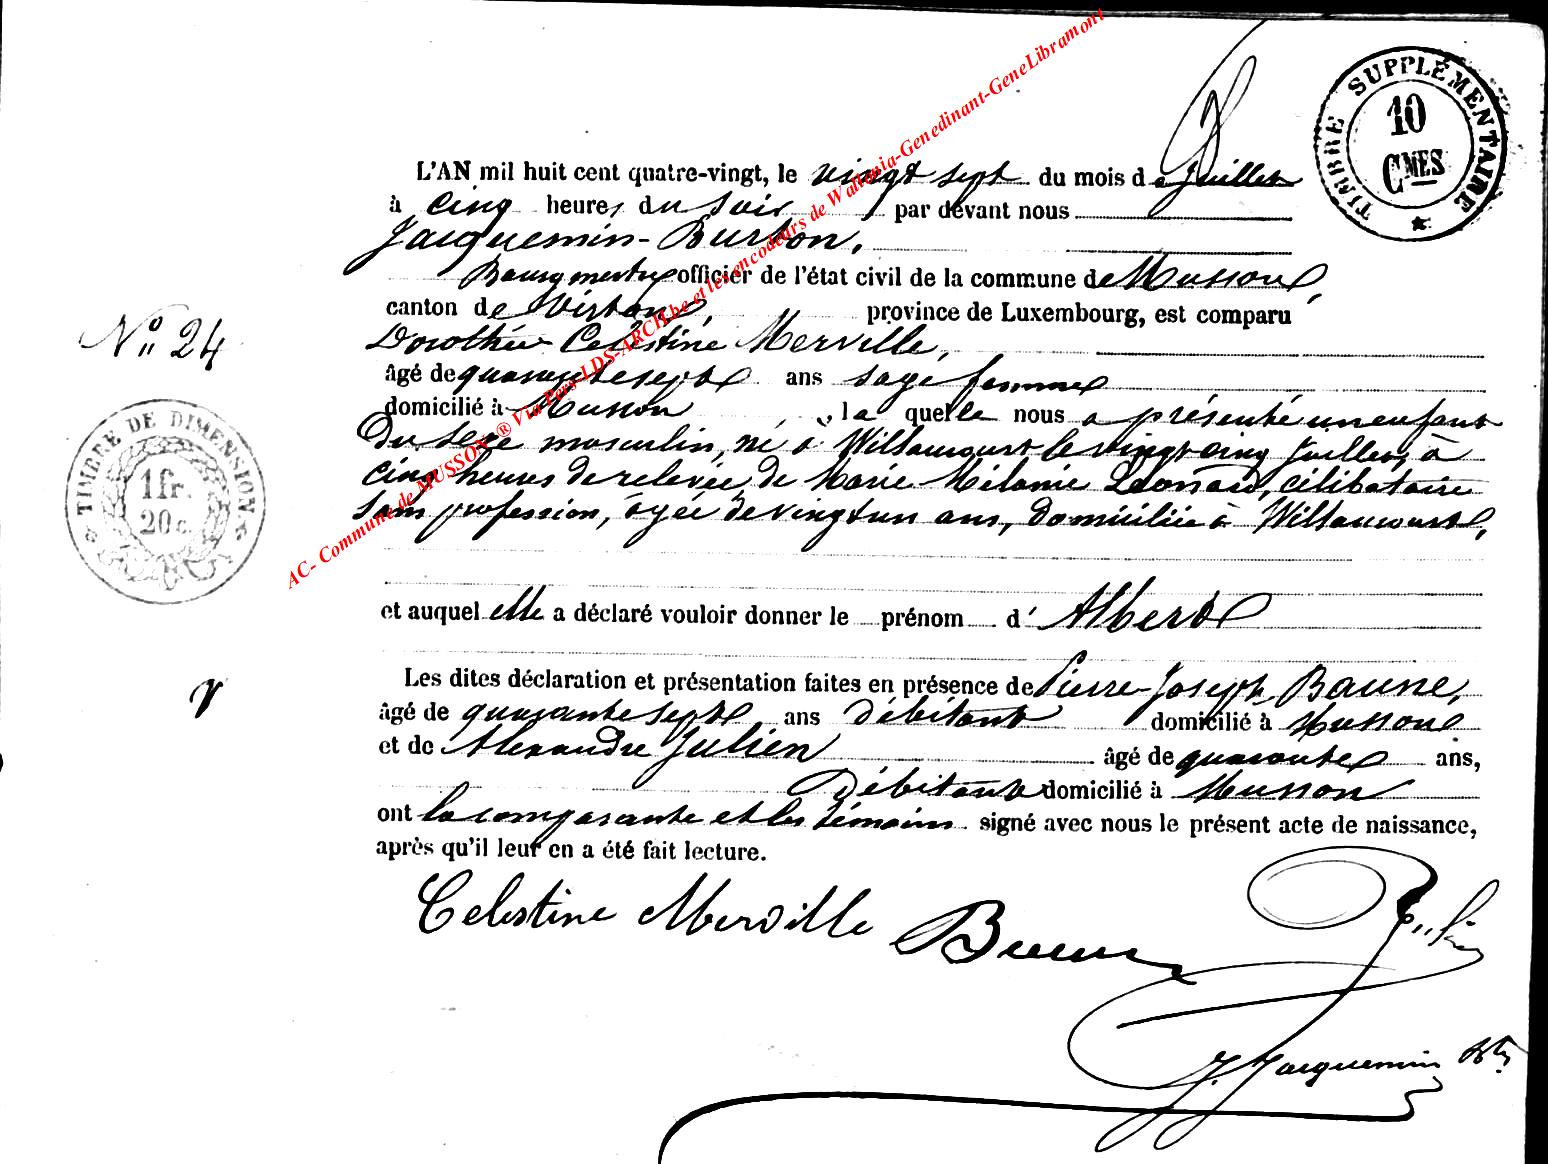 TIMBRE SUPPLÉMENTAIRE
10
CMES
L'AN mil huit cent quatre-vingt, le vingt sept du mois de Juillet
à cinq heures du soir par devant nous
Jacquemin-Burton,
Bourgmestre officier de l'état civil de la commune de Musson,
canton de Virton, province de Luxembourg, est comparu
Dorothée Celestine Merville,
âgé de quarante sept ans sage femme
domicilié à Musson, laquelle nous a présenté un enfant
du sexe masculin, né à Willancourt le vingt cinq Juillet, à
cinq heures de relevée de Marie Mélanie Léonard, célibataire
sans profession, âgée de vingt un ans, domiciliée à Willancourt,
et auquel elle a déclaré vouloir donner le prénom d'Albert
Les dites déclaration et présentation faites en présence de Pierre-Joseph Baune,
âgé de quarante sept ans débitant domicilié à Musson
et de Alexandre Julien âgé de quarante ans,
Débitant domicilié à Musson
ont la comparante et les témoins signé avec nous le présent acte de naissance,
après qu'il leur en a été fait lecture.
Celestine Merville
J. Jacquemin
No 24
TIMBRE DE DIMENSION
1 fr.
20 c.
AC- Commune de MUSSON ® Via Fers-LDS-ARCH.be et les encodeurs de Wallonia-Genedinant-GeneLibramont